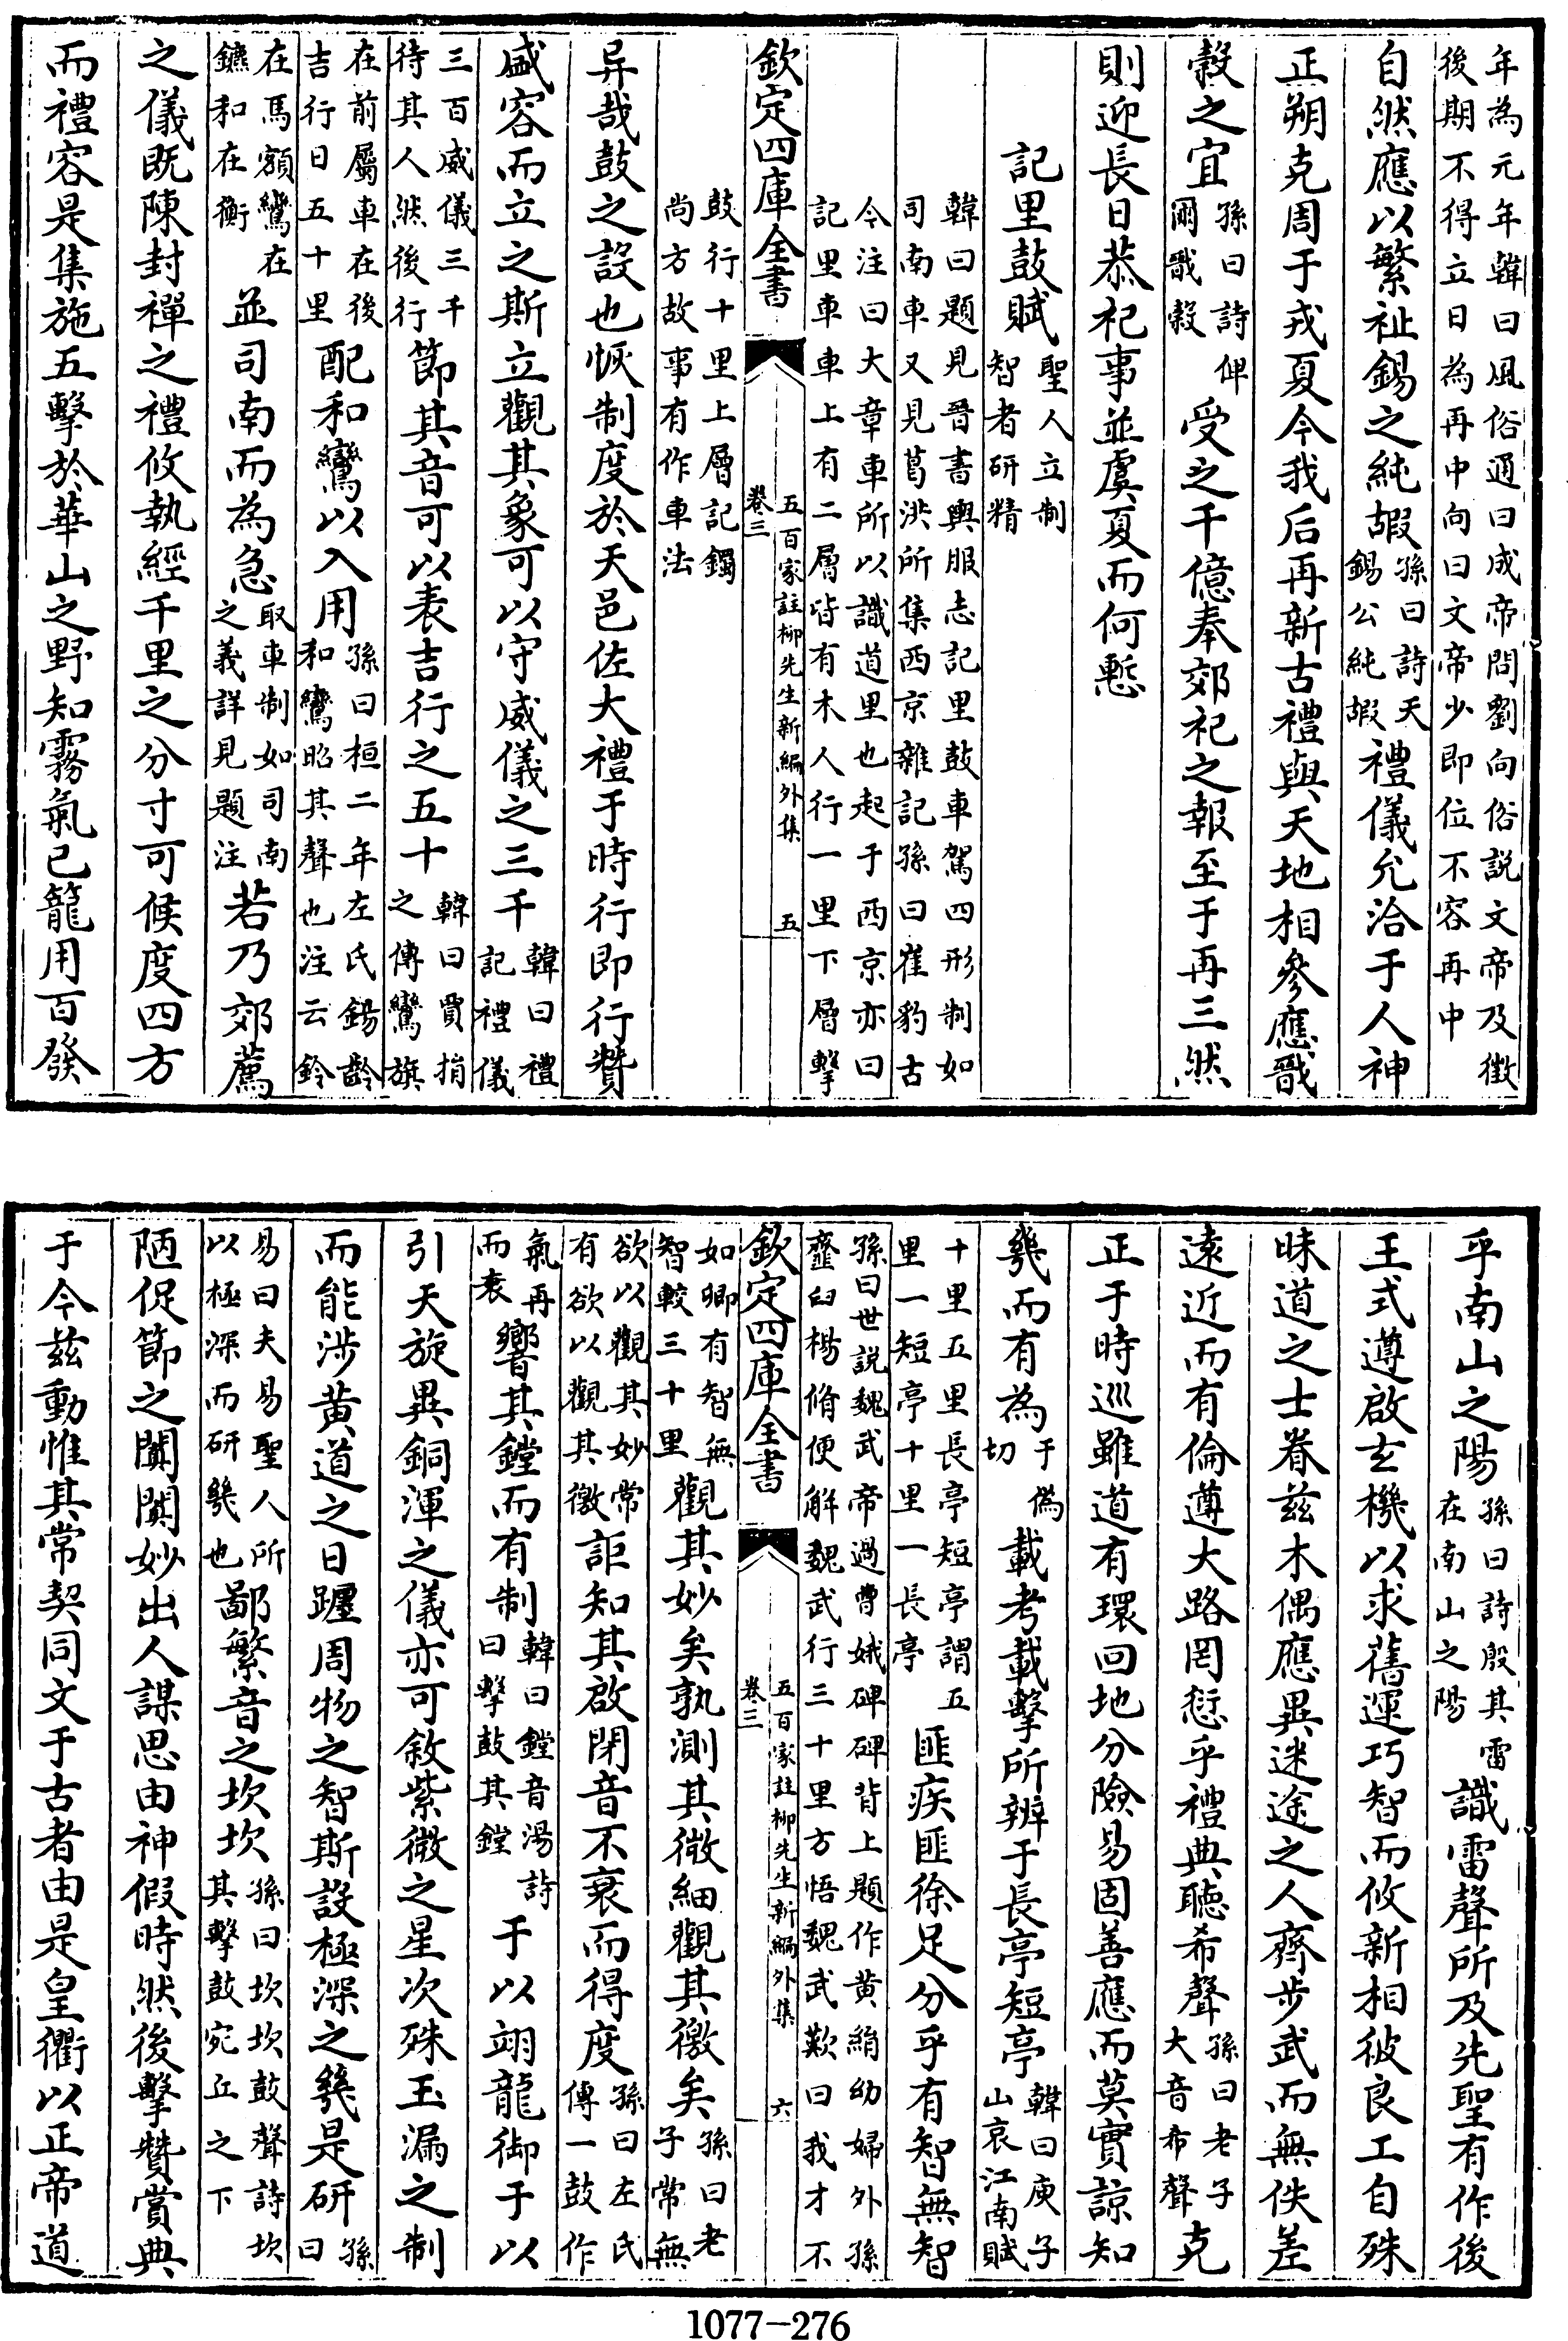 年為元年韓曰風俗通曰成帝問劉向俗説文帝及徵
後期不得立日為再中向曰文帝少即位不容再中
自然應以繁祉錫之純嘏孫曰詩天錫公純嘏禮儀允洽于人神
正朔克周于戎夏今我后再新古禮與天地相參應戩
穀之宜孫曰詩俾爾戩穀受之千億奉郊祀之報至于再三然
則迎長日恭祀事並虞夏而何慙
記里鼓賦聖人立制智者研精
韓曰題見晉書輿服志記里鼓車駕四形制如
司南車又見葛洪所集西京雜記孫曰崔豹古
今注曰大章車所以識道里也起于西京亦曰
記里車車上有二層皆有木人行一里下層擊
欽定四庫全書
卷三
五百家註柳先生新編外集
五
鼓行十里上層記鐲
尚方故事有作車法
异哉鼓之設也恢制度於天邑佐大禮于時行即行贊
盛容而立之斯立觀其象可以守威儀之三千韓曰禮記禮儀
三百威儀三千待其人然後行節其音可以表吉行之五十韓曰賈捐之傳鸞旗
在前屬車在後吉行日五十里配和鸞以入用孫曰桓二年左氏鍚鸞和鸞昭其聲也注云鈴
在馬額鸞在鑣和在衡並司南而為急取車制如司南之義詳見題注若乃郊薦
之儀既陳封禪之禮攸執經千里之分寸可候度四方
而禮容是集施五擊於華山之野知霧氣已籠用百發
乎南山之陽孫曰詩殷其雷在南山之陽識雷聲所及先聖有作後
王式遵啟玄機以求舊運巧智而攸新相彼良工自殊
昧道之士眷兹木偶應異迷途之人齊步武而無佚差
遠近而有倫遵大路罔愆乎禮典聽希聲孫曰老子大音希聲克
正于時巡雖道有環回地分險易固善應而莫實諒知
幾而有為于偽切載考載擊所辨于長亭短亭韓曰庾子山哀江南賦
十里五里長亭短亭謂五里一短亭十里一長亭匪疾匪徐足分乎有智無智
孫曰世説魏武帝過曹娥碑碑背上題作黄絹幼婦外孫
虀臼楊脩便解魏武行三十里方悟魏武歎曰我才不
欽定四庫全書
卷三
五百家註柳先生新編外集
六
如卿有智無智較三十里觀其妙矣孰測其微細觀其徼矣孫曰老子常無
欲以觀其妙常有欲以觀其徼詎知其啟閉音不衰而得度孫曰左氏傳一鼓作
氣再而衰響其鏜而有制韓曰鏜音湯詩曰擊鼓其鏜于以翊龍御于以
引天旋異銅渾之儀亦可敘紫微之星次殊玉漏之制
而能涉黄道之日躔周物之智斯設極深之幾是研孫曰
易曰夫易聖人所以極深而研幾也鄙繁音之坎坎孫曰坎坎鼓聲詩坎其擊鼓宛丘之下
陋促節之闐闐妙出人謀思由神假時然後擊贊賞典
于今兹動惟其常契同文于古者由是皇衢以正帝道
1077-276